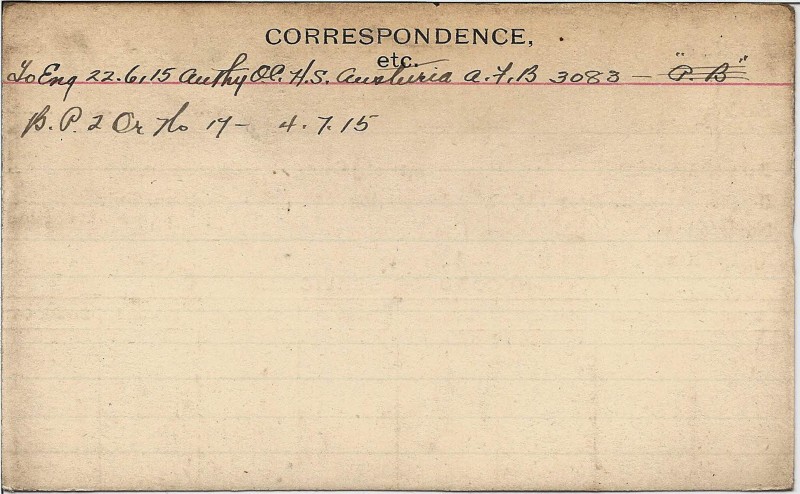 CORRESPONDENCE,
etc.
To Eng 22.6.15 Authy O.C. H.S. Austuria A.F.B 3083 — "P. B"
B. P. 2 Or No 17 — 4.7.15